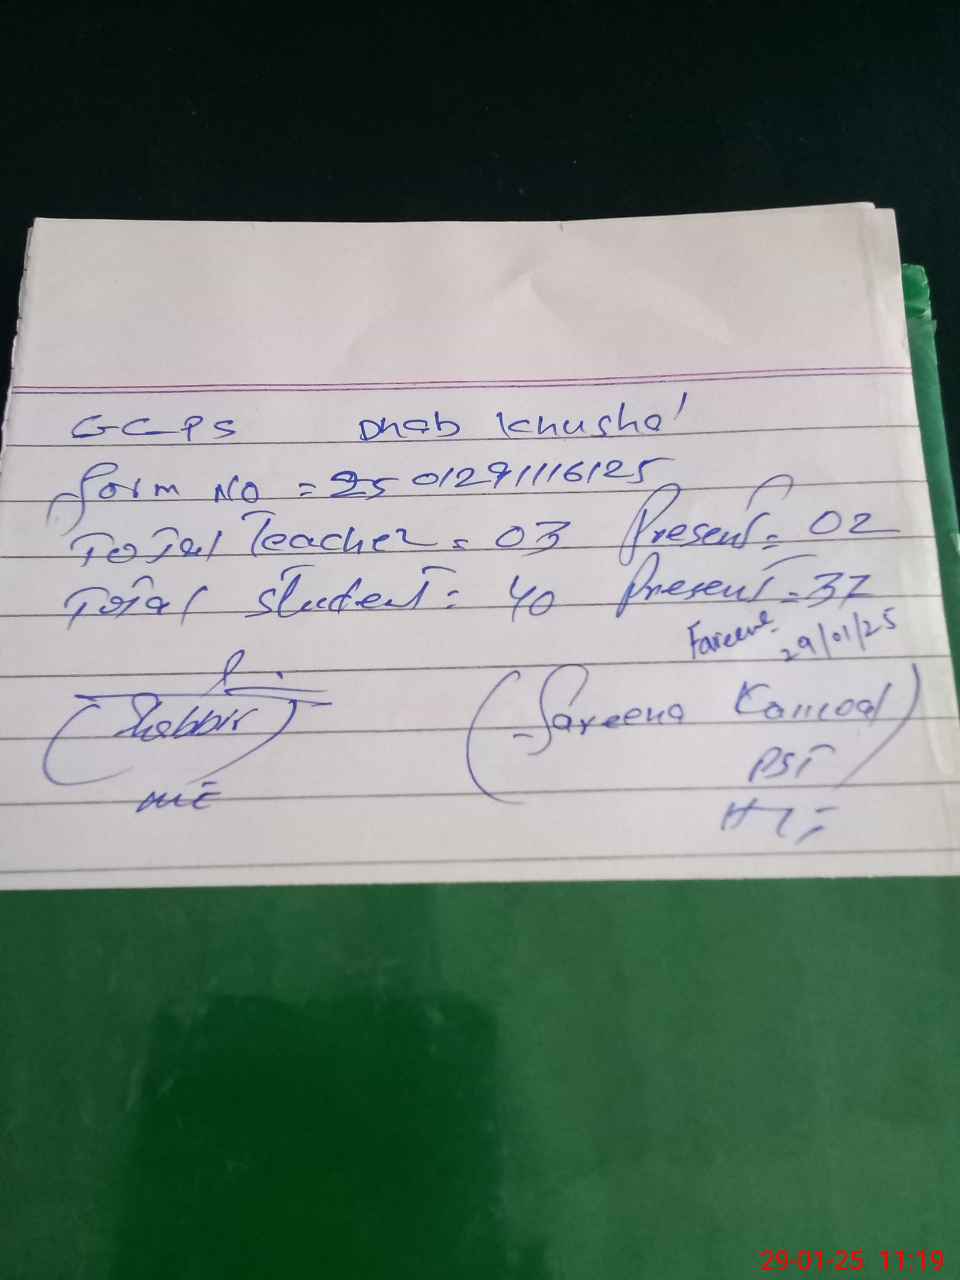 GGPS Dhab Khushal
Form No = 2501291116125
Total Teacher = 03 Present = 02
Total Student = 40 Present = 37
Fareena
29/01/25
(Shabbir) (Fareena Kanwal)
PST
29-01-25 11:19